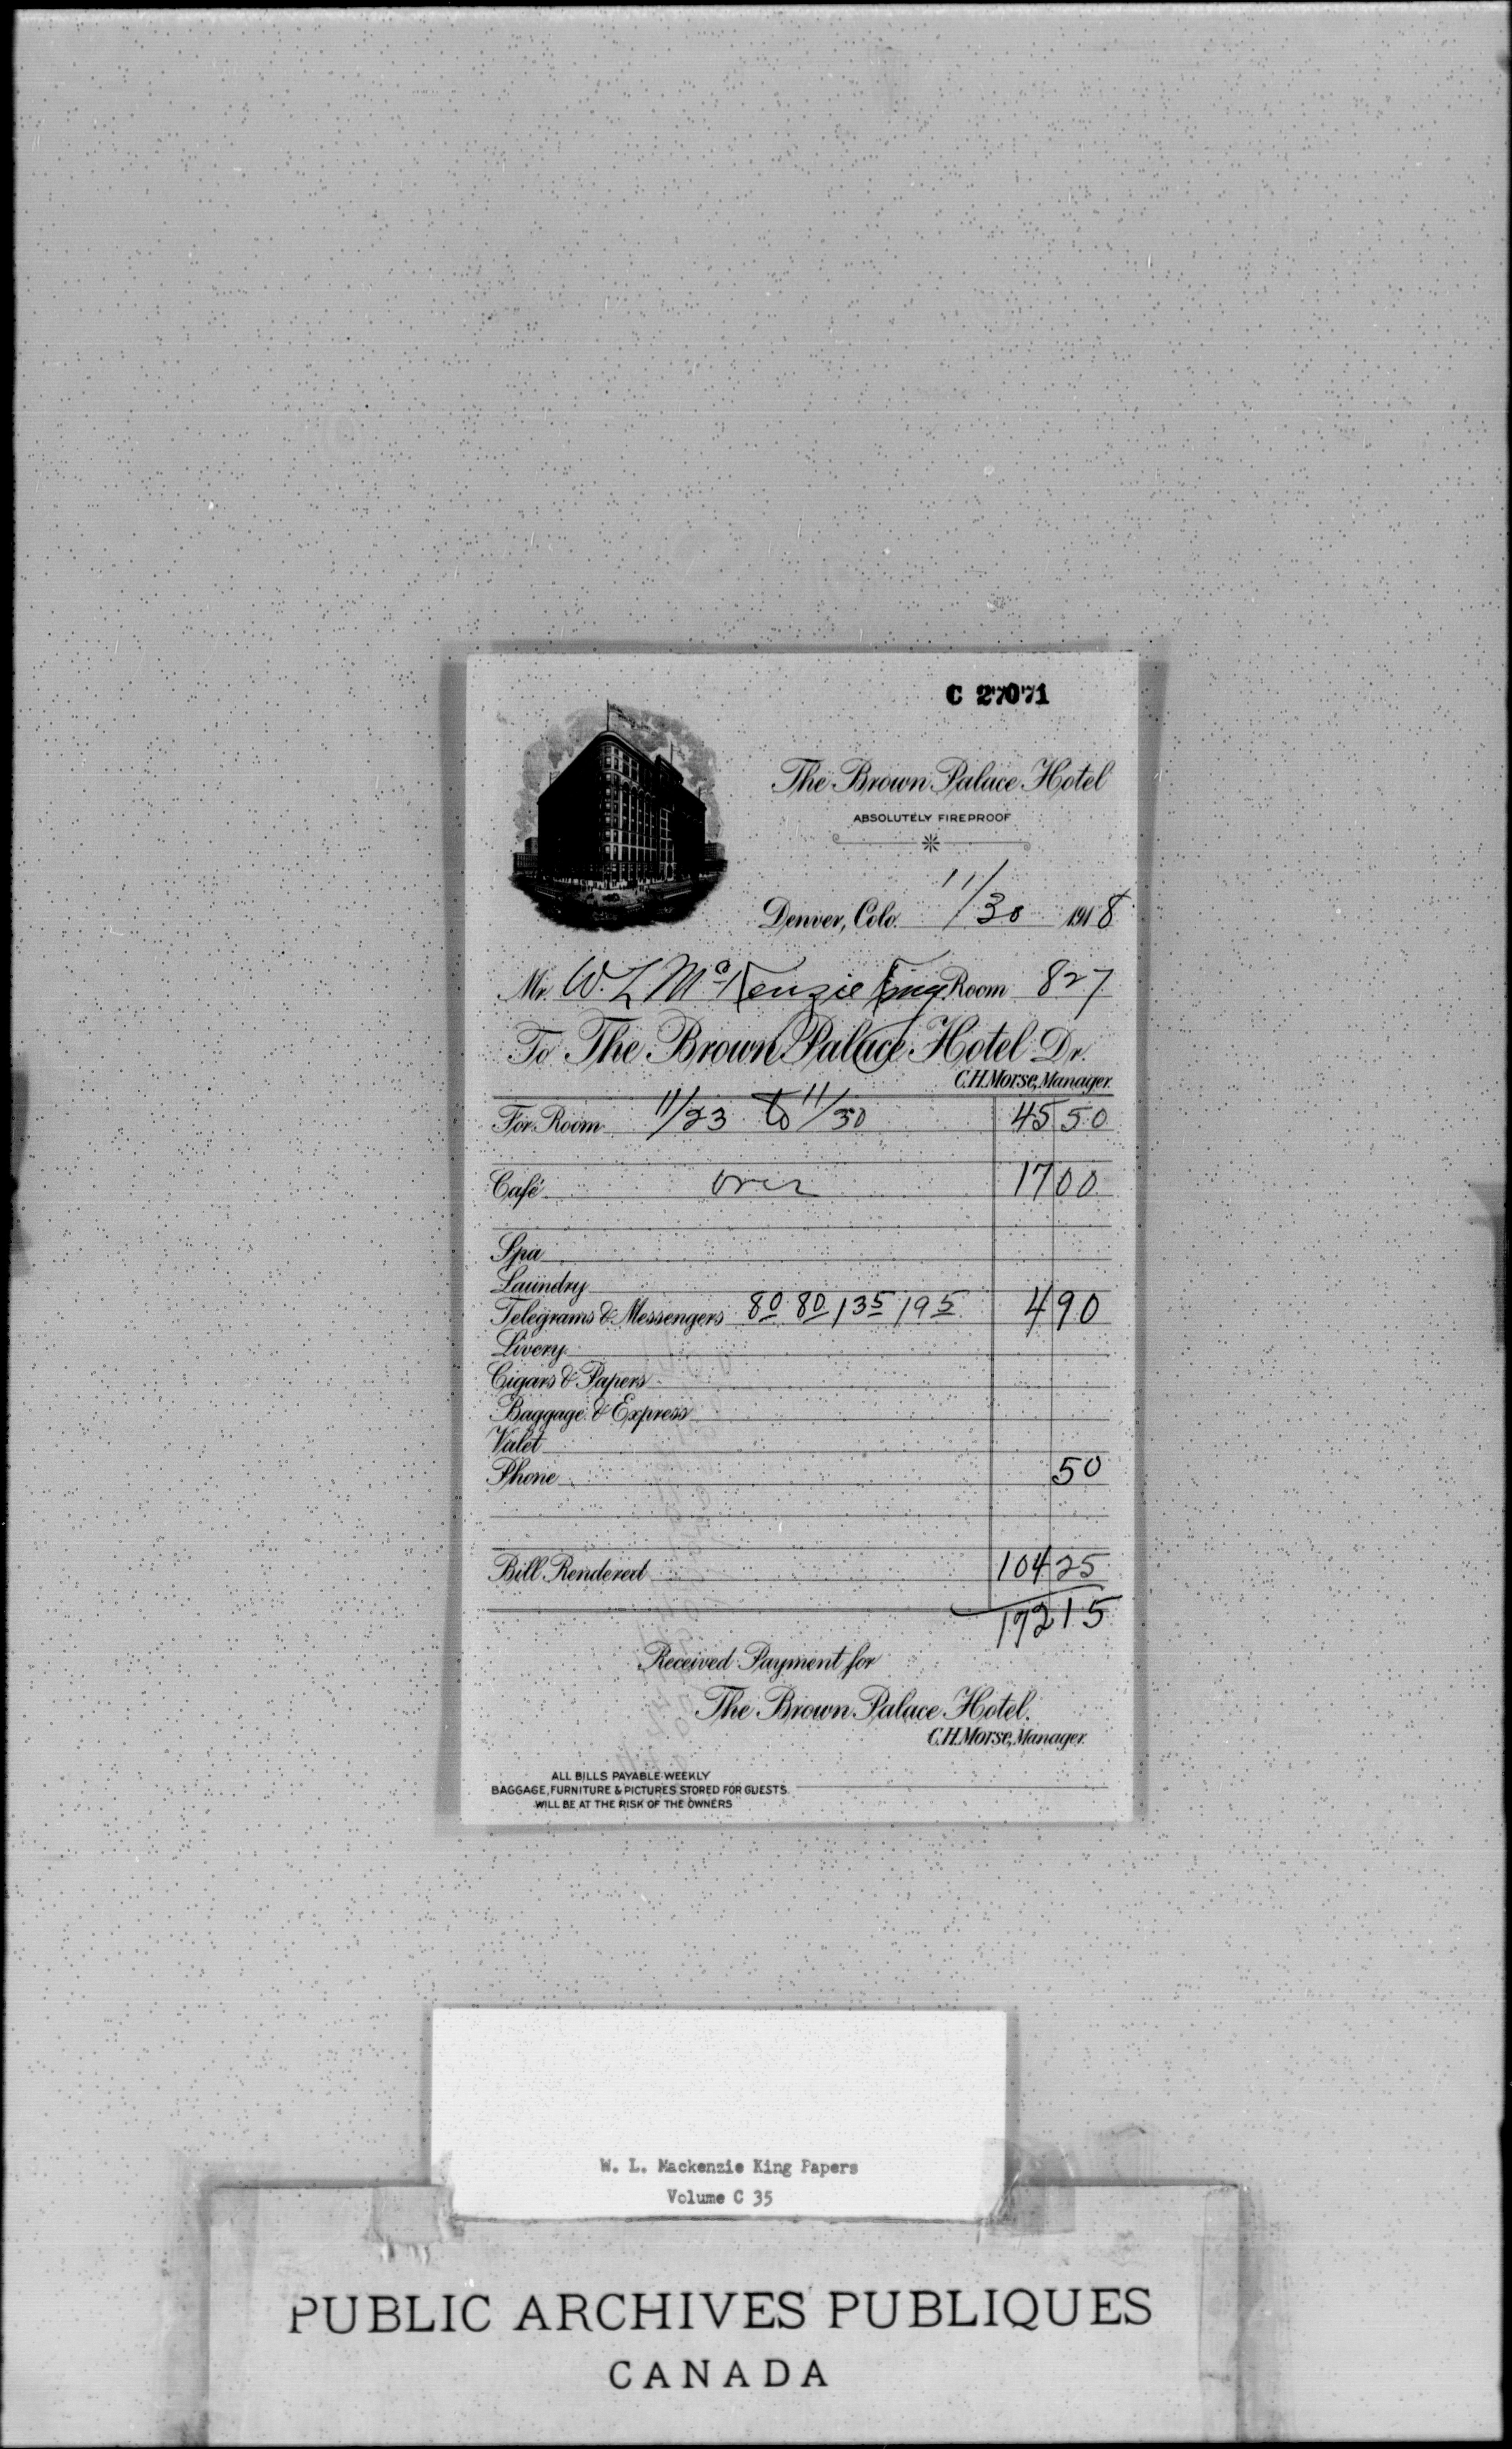 C 27071
The Brown Palace Hotel
ABSOLUTELY FIREPROOF
Denver, Colo. 11/30 1918
Mr. W. L McKenzie King Room 827
To The Brown Palace Hotel Dr.
C.H. Morse, Manager.
For Room 11/23 to 11/30 45 50
Café over 17 00
Spa
Laundry
Telegrams & Messengers 80 80 135 195 4 90
Livery
Cigars & Papers
Baggage & Express
Valet
Phone 50
Bill Rendered 104 25
172 15
Received Payment for
The Brown Palace Hotel.
C.H. Morse, Manager.
ALL BILLS PAYABLE WEEKLY
BAGGAGE, FURNITURE & PICTURES STORED FOR GUESTS
WILL BE AT THE RISK OF THE OWNERS
W. L. Mackenzie King Papers
Volume C 35
PUBLIC ARCHIVES PUBLIQUES
CANADA